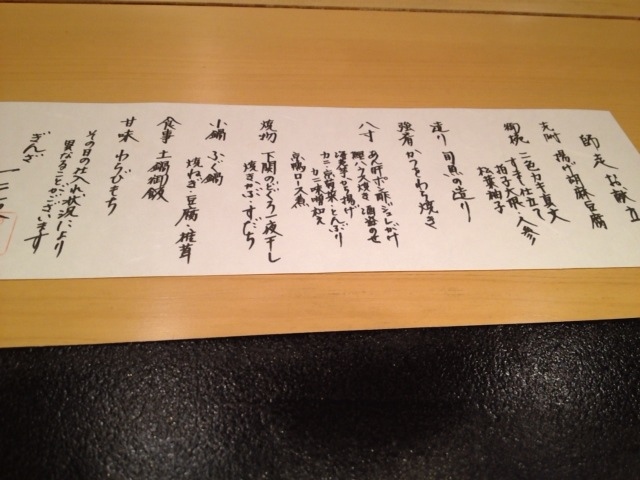 師走 お献立
先附 揚げ胡麻豆腐
御椀 二色カキ真丈
すまし仕立て
拍子大根、人参
松葉柚子
造り 旬魚の造り
強肴 かつをわら焼き
八寸 あん肝ポン酢ジュレがけ
海老芋
カニ・京菊菜・とんぶり
カニ味噌和え
京鴨ロース煮
焼物 下関のどぐろ一夜干し
焼きかぶ・すだち
小鍋 ぶり鍋
焼ねぎ・豆腐・椎茸
食事 土鍋御飯
甘味 わらびもち
その日の仕入れ状況により
異なることがございます
ぎんざ